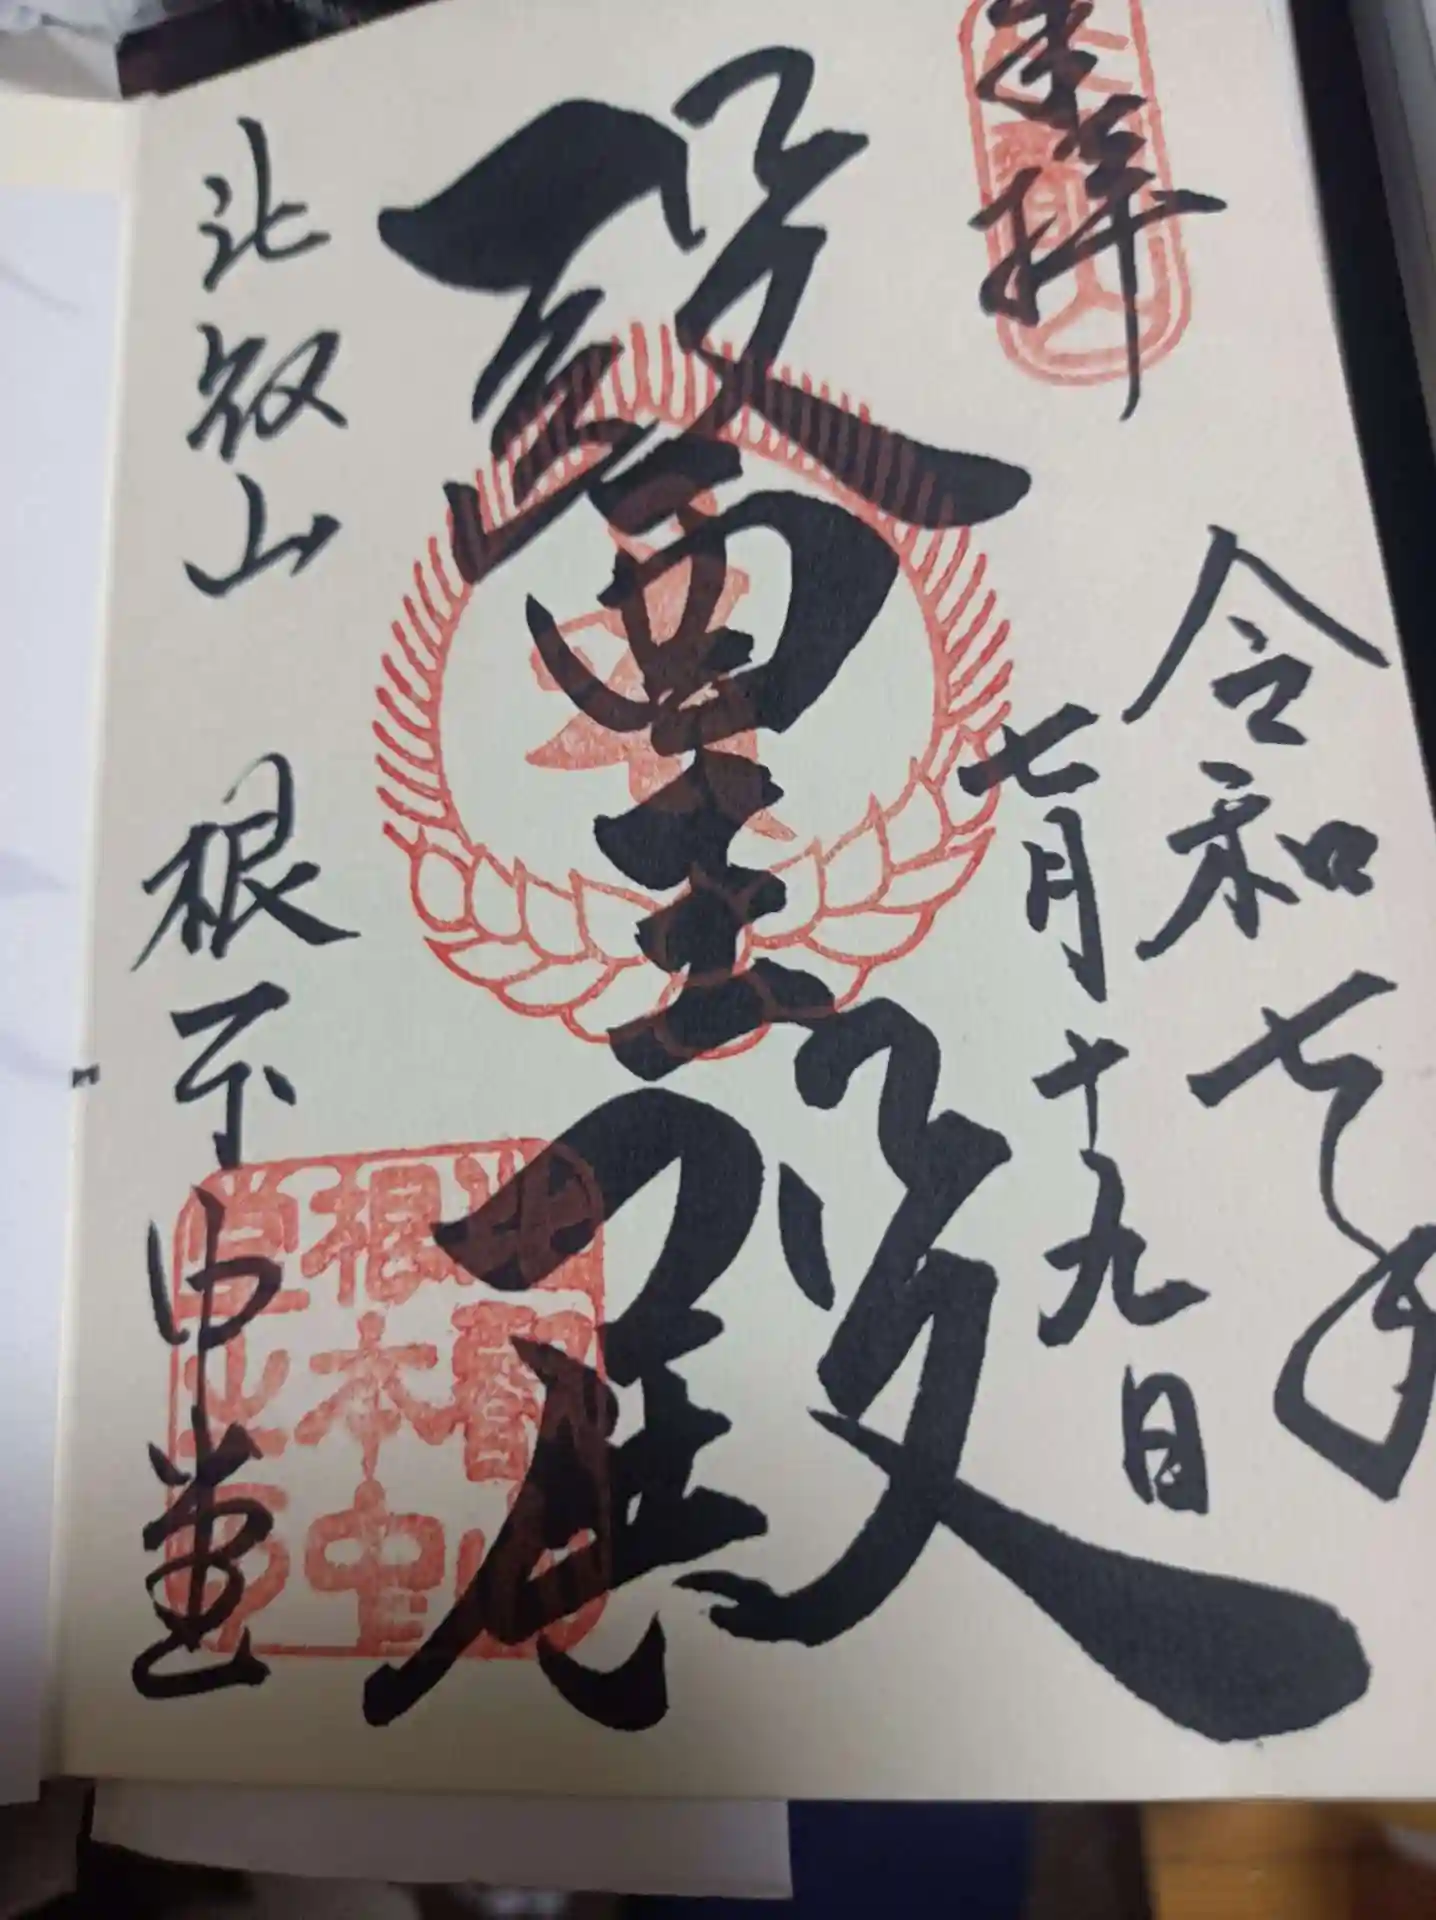 奉拝
令和七年
七月十九日
醫王殿
比叡山 根本中堂
比叡山
根本中
堂之印